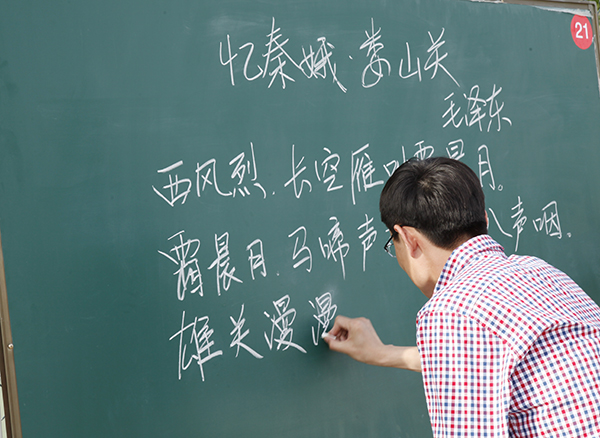 21
忆秦娥·娄山关
毛泽东
西风烈.长空雁叫霜晨月。
霜晨月.马啼声 声咽。
雄关漫漫